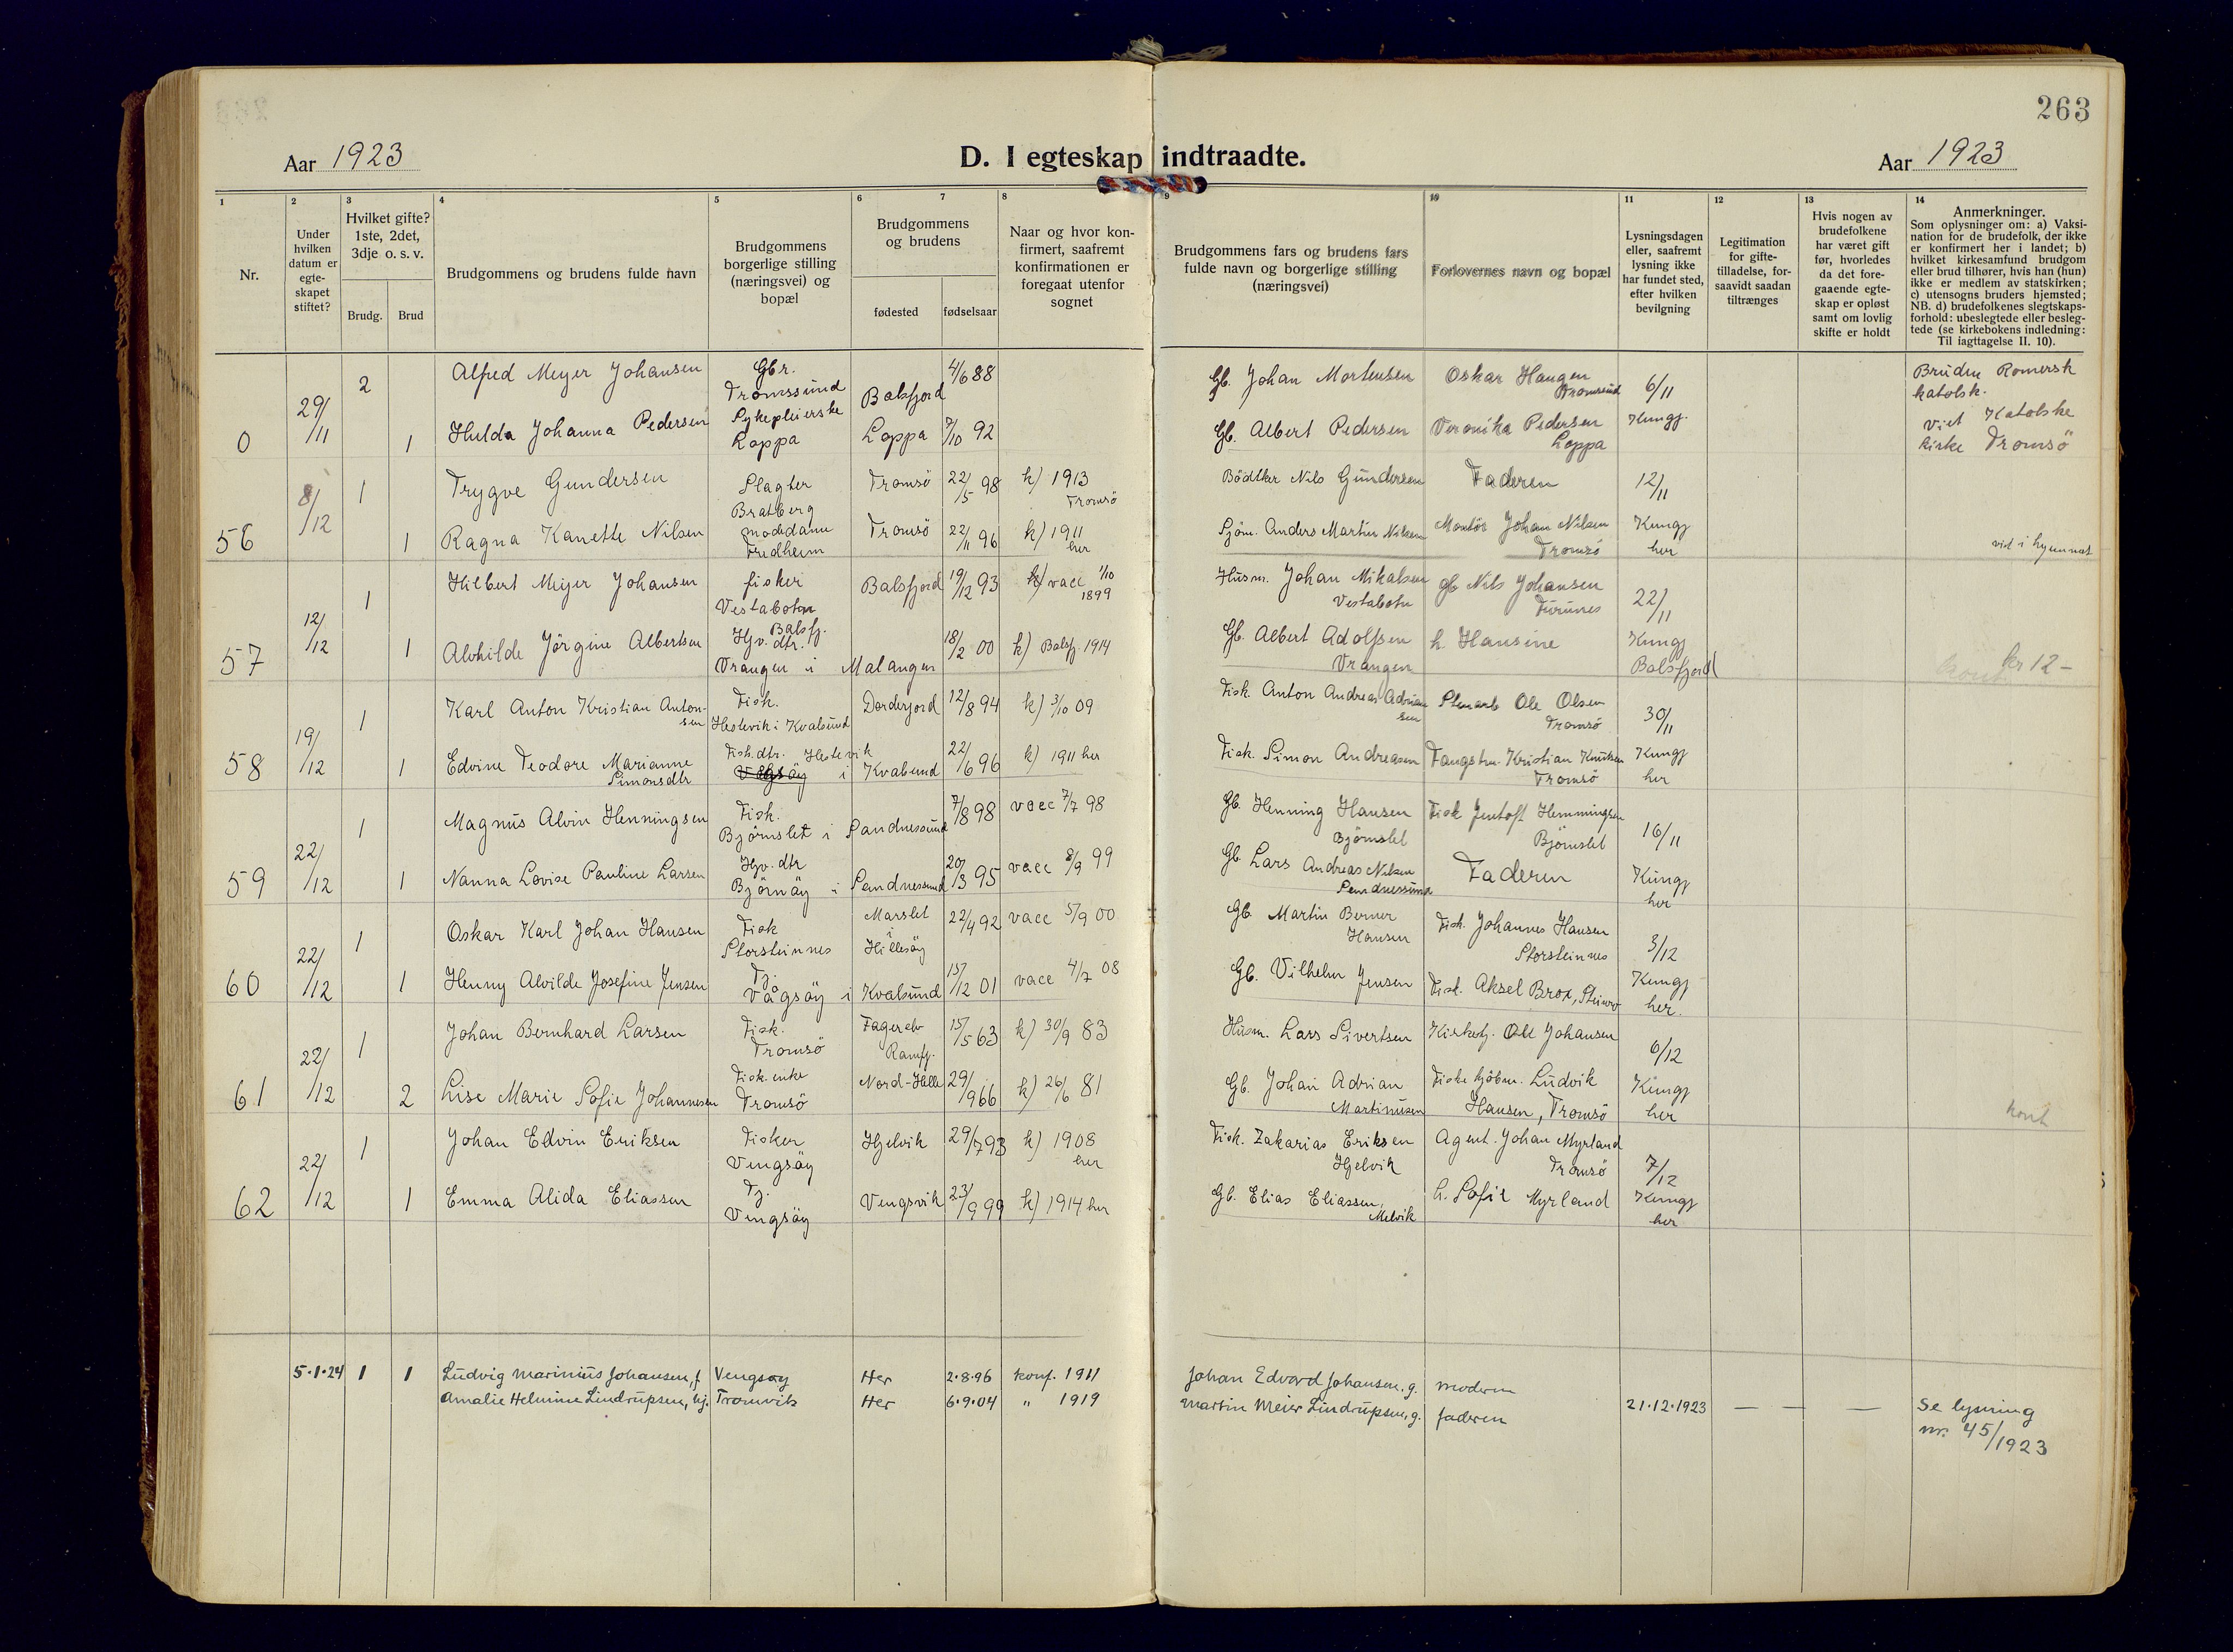 263
Aar 1923
D. I egteskap indtraadte.
Aar 1923
1
2
3
4
5
6
7
8
9
10
11
12
13
14
Nr.
Under hvilken datum er egte-skapet stiftet?
Hvilket gifte? 1ste, 2det, 3dje o. s. v.
Brudg.
Brud
Brudgommens og brudens fulde navn
Brudgommens borgerlige stilling (næringsvei) og bopæl
Brudgommens og brudens
fødested
fødselsaar
Naar og hvor kon-firmert, saafremt konfirmationen er foregaat utenfor sognet
Brudgommens fars og brudens fars fulde navn og borgerlige stilling (næringsvei)
Forlovernes navn og bopæl
Lysningsdagen eller, saafremt lysning ikke har fundet sted, efter hvilken bevilgning
Legitimation for gifte-tilladelse, for-saavidt saadan tiltrænges
Hvis nogen av brudefolkene har været gift før, hvorledes da det fore-gaaende egte-skap er opløst samt om lovlig skifte er holdt
Anmerkninger.
Som oplysninger om: a) Vaksi-nation for de brudefolk, der ikke er konfirmert her i landet; b) hvilket kirkesamfund brudgom eller brud tilhører, hvis han (hun) ikke er medlem av statskirken; c) utensogns bruders hjemsted; NB. d) brudefolkenes slegtskaps-forhold: ubeslegtede eller besleg-tede (se kirkebokens indledning: Til iagttagelse II. 10).
0 29/11 2 Alfred Meyer Johansen Gbr. Tromssund Balsfjord 4/6 88 Gb. Johan Mortensen Oskar Haugen Tromsund 6/11 Bruden Romersk katolsk.
1 Hulda Johanna Pedersen Sykepleierske Loppa Loppa 7/10 92 Gb. Albert Pedersen Veronika Pedersen Loppa Kungj. Viet Katolske kirke Tromsö
56 8/12 1 Trygve Gundersen Slagter Bratberg Tromsö 22/5 98 k) 1913 Tromsö Bödtker Nils Gundersen Faderen 12/11
1 Ragna Kanette Nilsen modedame Fredheim Tromsö 22/11 96 k) 1911 her Sjöm. Anders Martin Nilsen Montör Johan Nilsen Tromsö Kungj her vid i hjemmet
57 12/12 1 Hilbert Meyer Johansen fisker Vestabotn Balsfj. Balsfjord 19/12 93 k) vacc 1/10 1899 Husm. Johan Mikalsen Vestabotn gb Nils Johansen Furunes 22/11
1 Alvhilde Jörgine Albertsen Hjv. dtr. Vrangen i Malangen 18/2 00 k) Balsfj. 1914 Gb. Albert Adolfsen Vrangen h. Hansine Kungj Balsfjord kr 12-
58 19/12 1 Karl Anton Kristian Anton-sen Fisk. Hestevik i Kvalsund Dorderjord 12/8 94 k) 3/10 09 Fisk. Anton Andreas Adriansen Stenarb Ole Olsen Tromsö 30/11
1 Edvine Teodore Marianne Simonsdtr Fisk. dtr. Hestevik i Kvalsund 22/6 96 k) 1911 her Fisk. Simon Andreasen Fangstm. Kristian Knutsen Tromsö Kungj her
59 22/12 1 Magnus Alvin Henningsen Fisk. Björnslet i Sandnessund 7/8 98 vacc 7/7 98 Gb. Henning Hansen Björnslet Fisk Jentoft Hemmingsen Björnslet 16/11
1 Nanna Lovise Pauline Larsen Hjv. dtr Björnöy i Sandnessund 20/3 95 vacc 8/9 99 Gb Lars Andreas Nilsen Sandnessund Faderen Kungj her
60 22/12 1 Oskar Karl Johan Hansen Fisk Storsteinnes Marslet i Hillesöy 22/4 92 vacc 5/9 00 Gb. Martin Berner Hansen Fisk. Johannes Hansen Storsteinnes 3/12
1 Henny Alvilde Josefine Jensen Tj. Vågsöy i Kvalsund 15/12 01 vacc 4/7 08 Gb. Vilhelm Jensen Fisk. Aksel Brox, Kungj her.
61 22/12 1 Johan Bernhard Larsen Fisk. Tromsö Fagerelv Ramfj. 15/5 63 k) 30/9 83 Husm. Lars Sivertsen Kirketj. Ole Johansen 6/12
2 Lise Marie Sofie Johannesen Fisk. enke Tromsö Nord-Hella 29/9 66 k) 26/6 81 Gb. Johan Adrian Martinusen Fiskekjöbm. Ludvik Hansen, Tromsö Kungj her kont
62 22/12 1 Johan Edvin Eriksen Fisker Vengsöy Hjelvik 29/7 93 k) 1908 her Fisk. Zakarias Eriksen Hjelvik Agent. Johan Myrland Tromsö 7/12
1 Emma Alida Eliassen Tj. Vengsöy Vengsvik 23/9 99 k) 1914 her Gb. Elias Eliassen, Melvik h. Sofie Myrland Kungj her
5.1.24 1 1 Ludvig Marinius Johansen, f Vengsøy Her 2.8.96 konf. 1911 Johan Edvard Johansen, g. moderen
Amalie Helmine Lindrupsen, hj. Tromvik Her 6.9.04 " 1919 Martin Meier Lindrupsen, g. faderen 21.12.1923 — — — Se lysning
nr. 45/1923